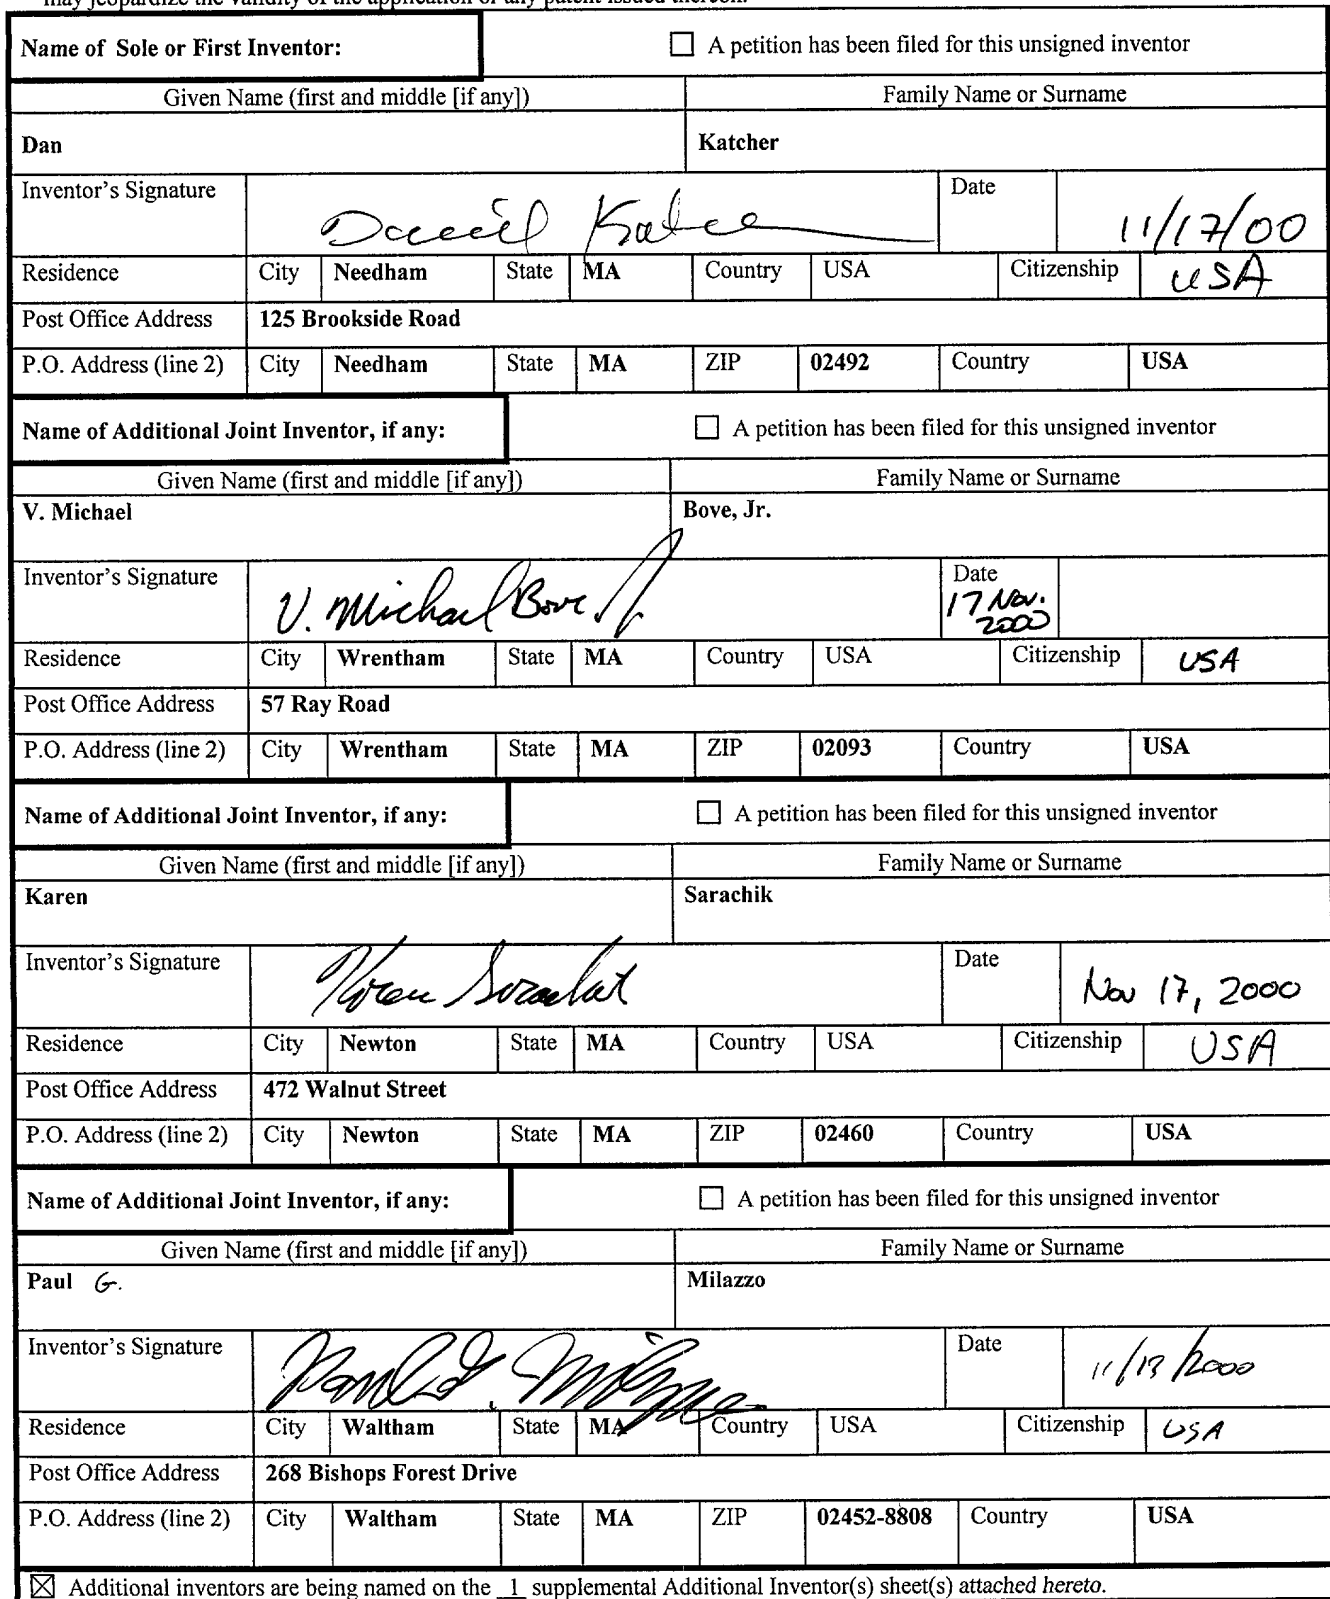 may jeopardize the validity of the application or any patent issued thereon.
Name of Sole or First Inventor: ☐ A petition has been filed for this unsigned inventor
Given Name (first and middle [if any]) Family Name or Surname
Dan Katcher
Inventor's Signature Daniel Katcher Date 11/17/00
Residence City Needham State MA Country USA Citizenship USA
Post Office Address 125 Brookside Road
P.O. Address (line 2) City Needham State MA ZIP 02492 Country USA
Name of Additional Joint Inventor, if any: ☐ A petition has been filed for this unsigned inventor
Given Name (first and middle [if any]) Family Name or Surname
V. Michael Bove, Jr.
Inventor's Signature V. Michael Bove Jr. Date 17 Nov. 2000
Residence City Wrentham State MA Country USA Citizenship USA
Post Office Address 57 Ray Road
P.O. Address (line 2) City Wrentham State MA ZIP 02093 Country USA
Name of Additional Joint Inventor, if any: ☐ A petition has been filed for this unsigned inventor
Given Name (first and middle [if any]) Family Name or Surname
Karen Sarachik
Inventor's Signature Karen Sarachik Date Nov 17, 2000
Residence City Newton State MA Country USA Citizenship USA
Post Office Address 472 Walnut Street
P.O. Address (line 2) City Newton State MA ZIP 02460 Country USA
Name of Additional Joint Inventor, if any: ☐ A petition has been filed for this unsigned inventor
Given Name (first and middle [if any]) Family Name or Surname
Paul G. Milazzo
Inventor's Signature Paul G. Milazzo Date 11/13/2000
Residence City Waltham State MA Country USA Citizenship USA
Post Office Address 268 Bishops Forest Drive
P.O. Address (line 2) City Waltham State MA ZIP 02452-8808 Country USA
☒ Additional inventors are being named on the 1 supplemental Additional Inventor(s) sheet(s) attached hereto.